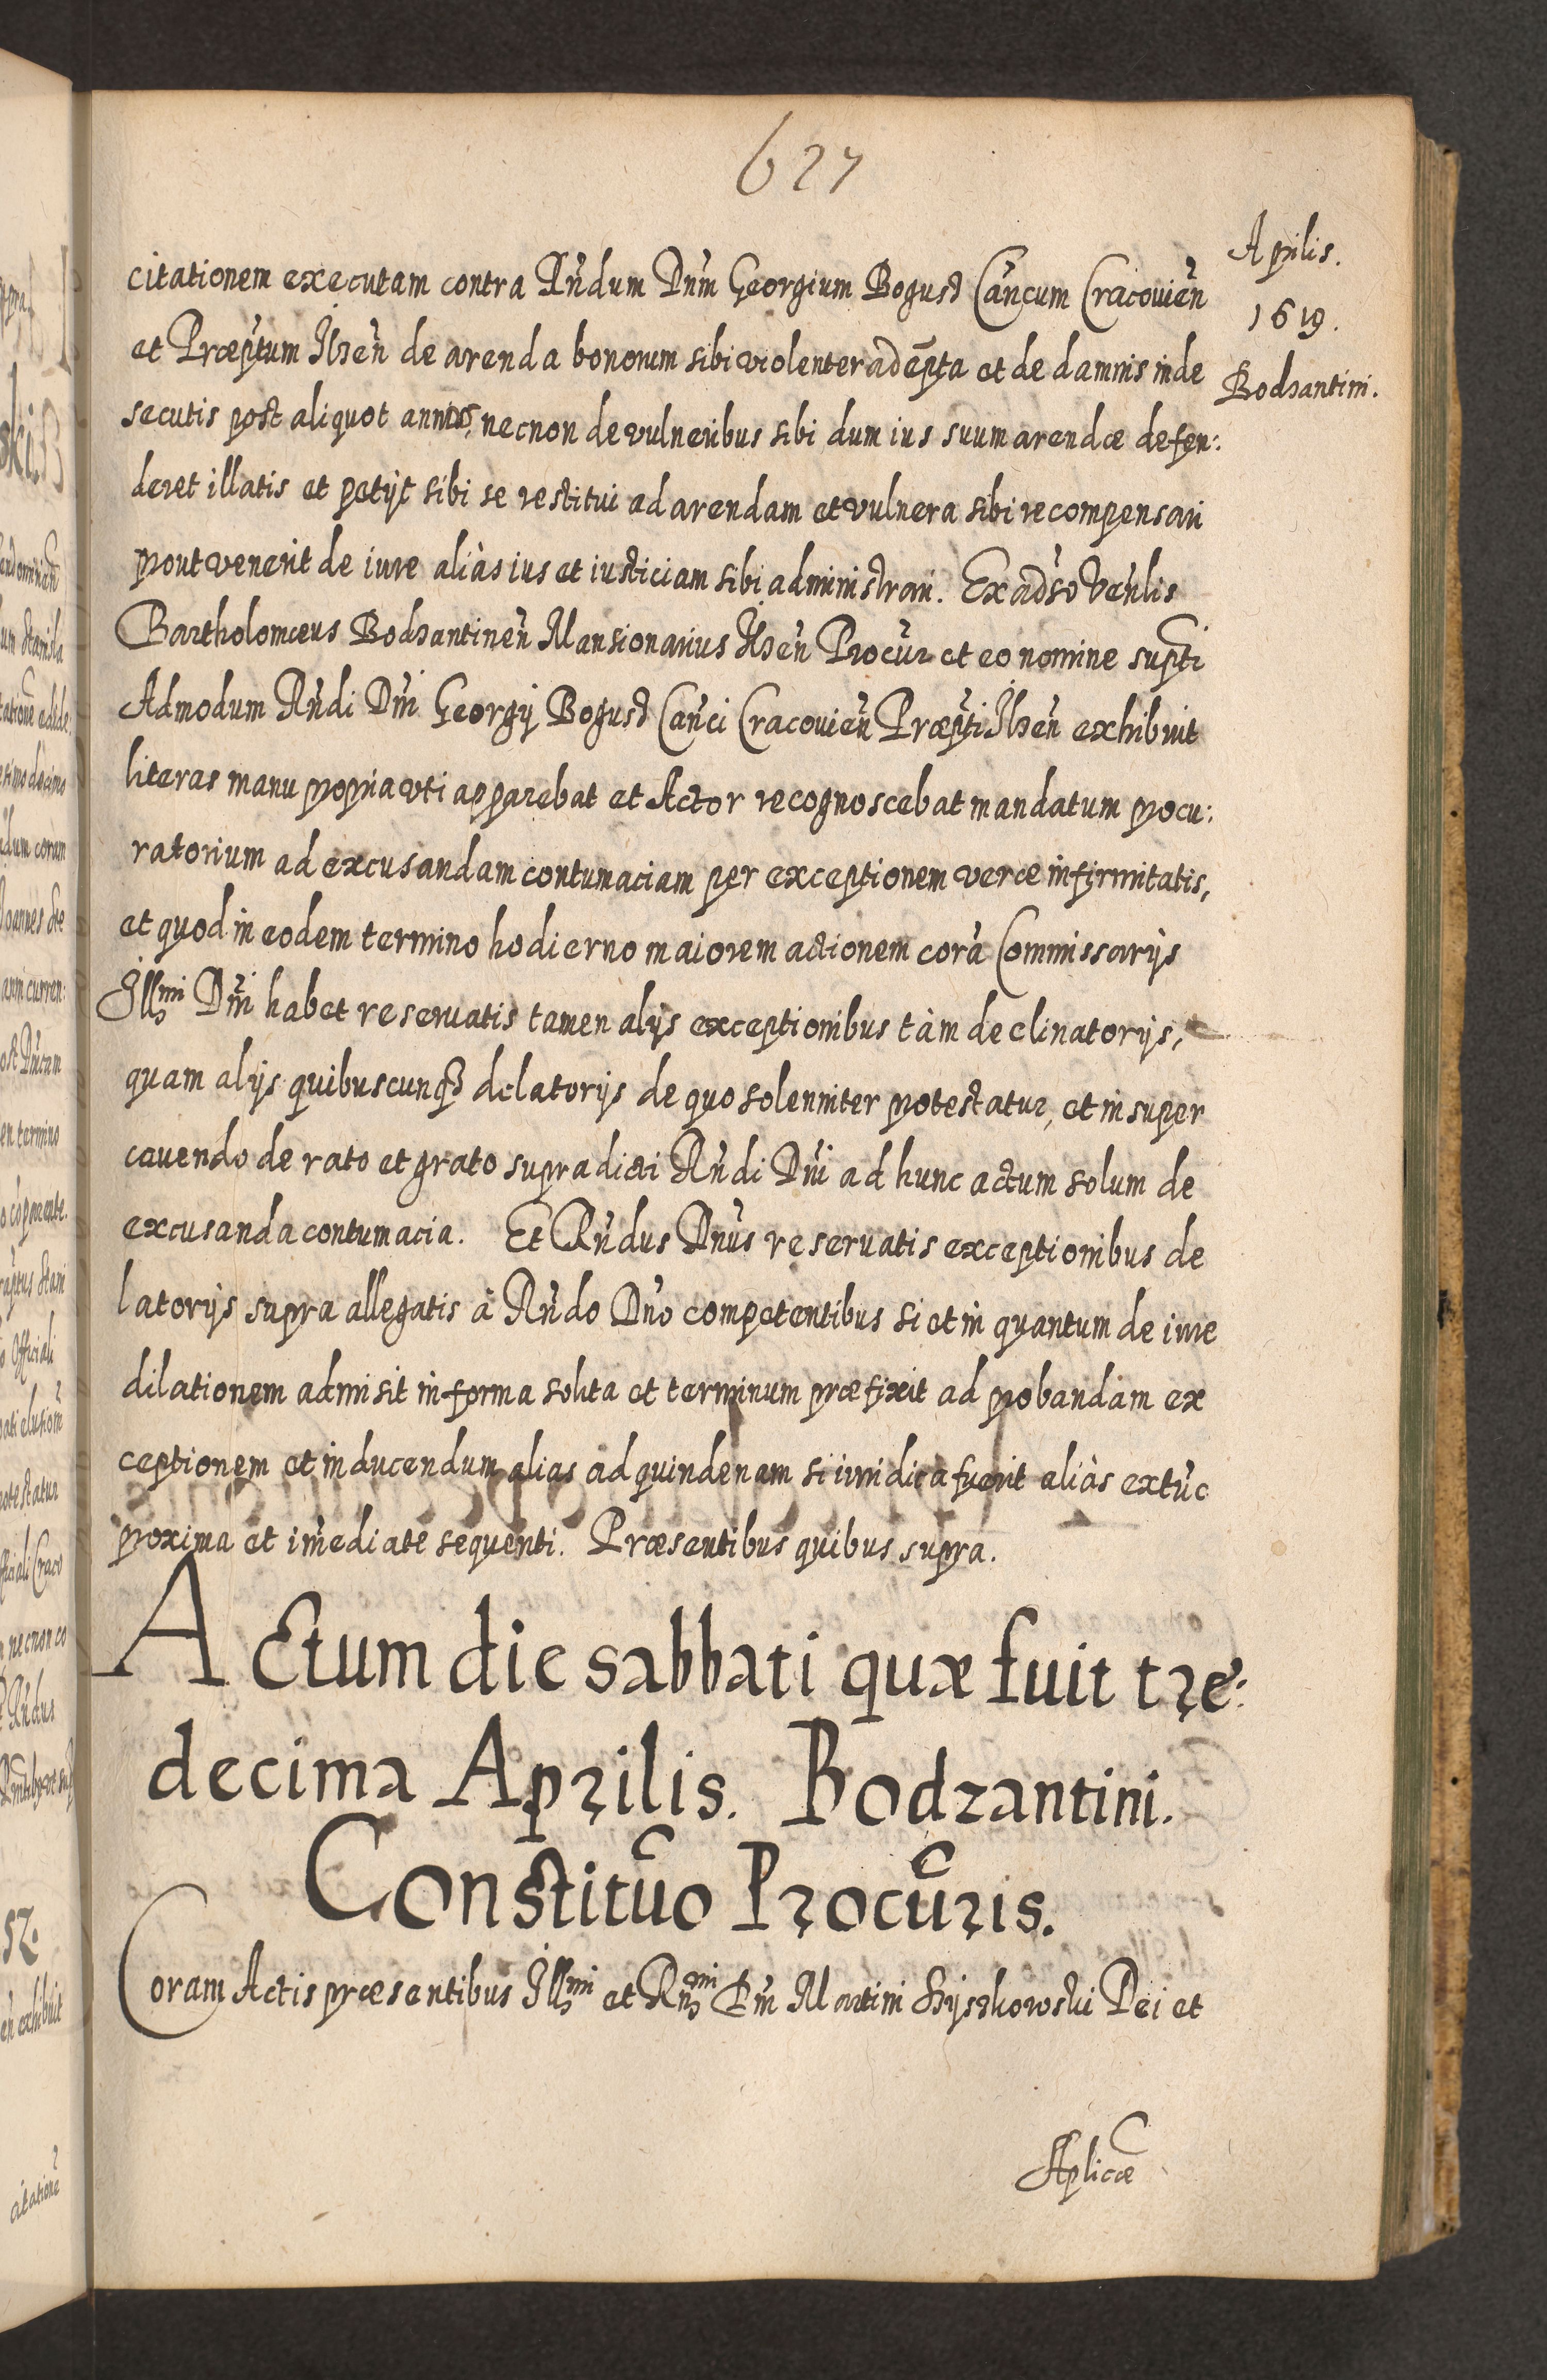 627
Aprilis.
1619.
Bodzantini.
citationem executam contra Rndum Dnm Georgium Bogusz Cancum Cracovien
et Præptum Ilzen de arenda bonorum sibi violenter adempta et de damnis inde
secutis post aliquot annos, necnon de vulneribus sibi dum ius suum arendæ defen:
deret illatis et petijt sibi se restitui ad arendam et vulnera sibi recompensari
prout venerit de iure aliàs ius et iusticiam sibi administrari. Ex adso Venlis
Bartholomæus Bodzantinen Mansionarius Ilzen Procur et eo nomine supti
Admodum Rndi Dni Georgij Bogusz Canci Cracovien Præpti Ilzen exhibuit
literas manu propria vti apparebat et Actor recognoscebat mandatum procu:
ratorium ad excusandam contumaciam per exceptionem veræ infirmitatis,
et quod in eodem termino hodierno maiorem actionem corà Commissarijs
Illmi Dni habet reseruatis tamen alijs exceptionibus tàm declinatorijs,
quam alijs quibuscunq3 delatorijs de quo solenniter protestatur, et insuper
cauendo de rato et grato supradicti Rndi Dni ad hunc actum solum de
excusanda contumacia. Et Rndus Dnus reseruatis exceptionibus de
latorijs supra allegatis à Rndo Dno competentibus si et in quantum de iure
dilationem admisit in forma solita et terminum præfixit ad probandam ex
ceptionem et inducendum alias ad quindenam si iuridica fuerit aliàs extuc
proxima et imediate sequenti. Præsentibus quibus supra.
Actum die sabbati quæ fuit tre:
decima Aprilis. Bodzantini.
Constituo Procuris.
Coram Actis præsentibus Illmi et Rnmi Dni Martini Szyszkowski Dei et
Aplicæ